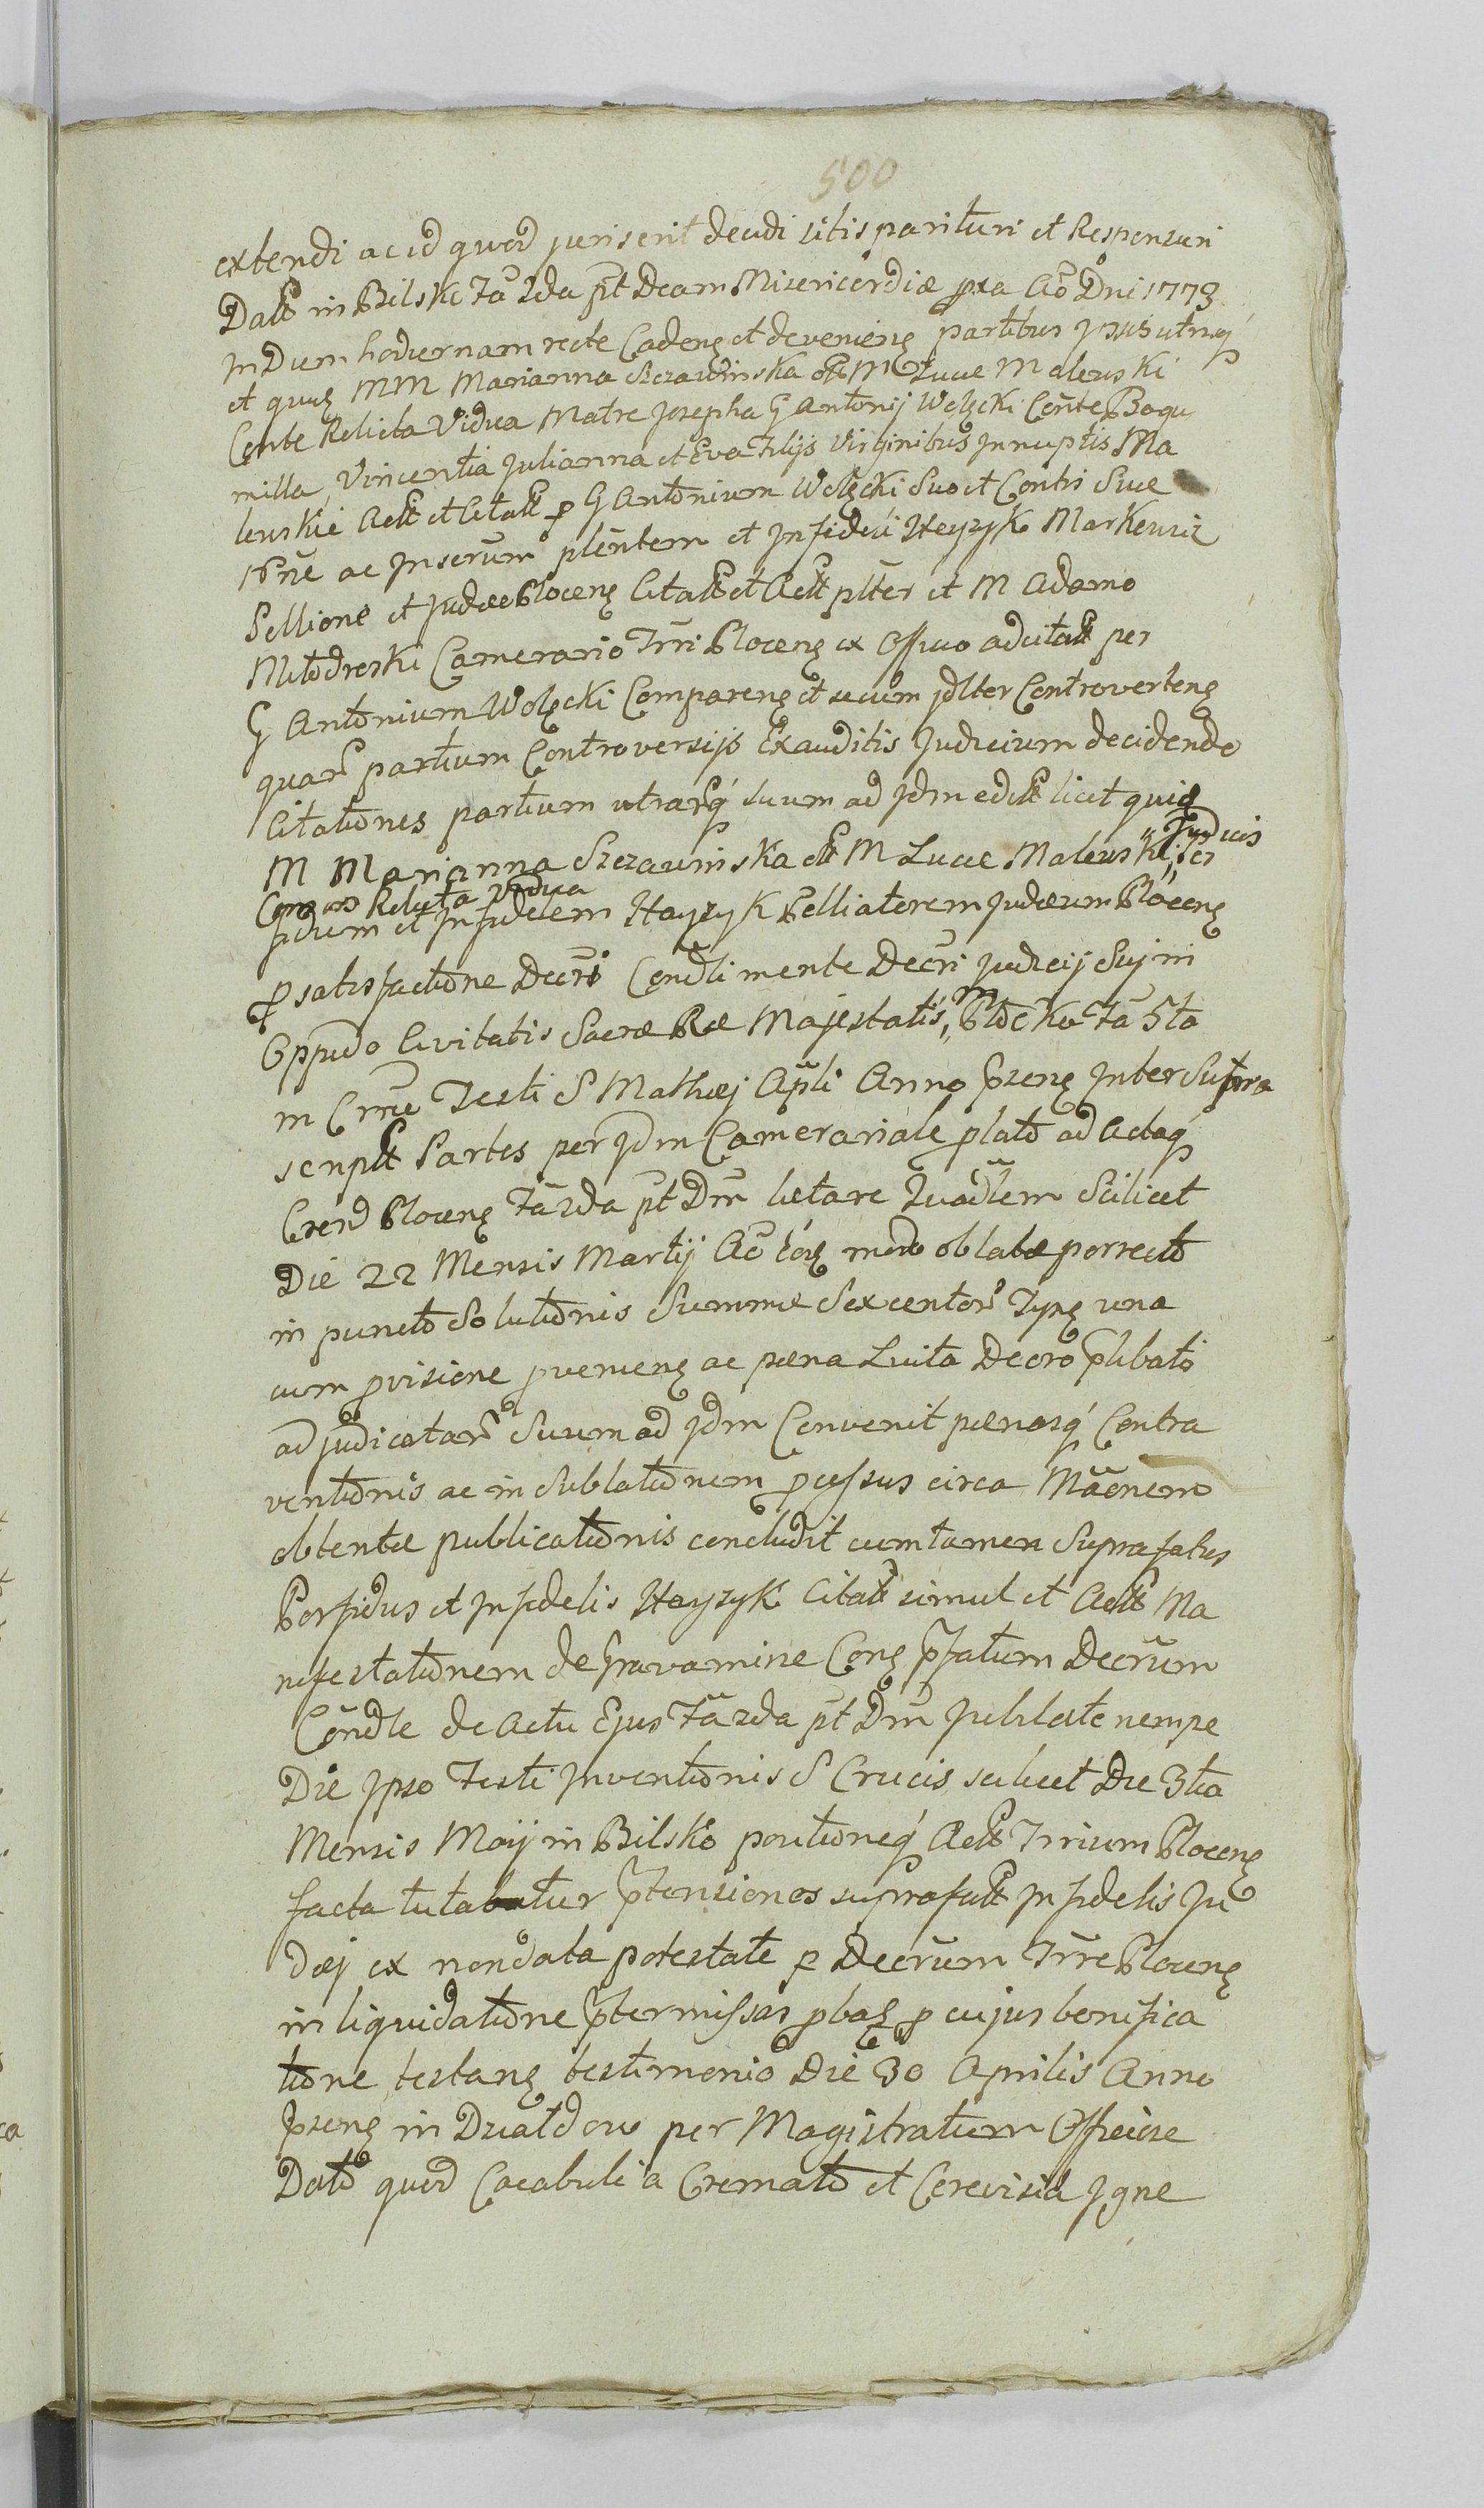 500
extendi ac id quod juris erit decidi sitis parituri et Responsuri
Datt in Bilsk Fa 2da pt Dcam Misericordiæ pxa Ao Dni 1773
In Diem hodiernam recte Cadens et deveniens partibus ipsis utrinq
et quidz MM Marianna Szczawinska olt M Lucæ Malewski
Conte Relicta Vidua Matre Josepha G Antonij Wolęcki Conte Bogu
milla, Vincentia Julianna et Eva Filijs Virginibus Innuptis Ma
lewskie Actt et Citatt p G Antonium Wolęcki Suo et Contis Suæ
Noe ac Inserum plentem et Infideli Hayzyk Markewic
Pellione et Judæo Plocens Citatt et Actt plter et M Adamo
Mlodzeski Camerario Trri Plocens ex Officio adcitatt per
G Antonium Wolęcki Comparens et secum jdlter Controvertens
quar partium Controversijs Exauditis Judicium decidendo
Citationes partium utrarq suum ad jdm edctt licet quia
M Marianna Szczawinska olt M Lucæ Malewski Judicis Per
Consors Relicta Vidua
fidum et Infidelem Hayzyk Pelliatorem Judæum Plocens
p satisfactione Decri Condli mente Decri Judicij Sui in
Oppido Civitatis Sacræ Ræ Majestatis Plocko Fa 5ta
in Crno Festi S Mathæj Apli Anno przens Inter Supra
scriptt Partes per Jdm Camerariale plato ad Actaq
Crend Plocens Fa 2da pt Dm lætare Quadlem Scilicet
Die 22 Mensis Martij Ao eos modo oblatæ porrecto
in puncto Solutionis Summæ Sexcentor Typs una
cum pvisione pveniens ac pæna Luita Decro plibato
adjudicatar Suum ad jdm Convenit pænasq Contra
ventionis ac in Sublationem pcessus circa Maonem
obtentæ publicationis concludit cum tamen Suprafatus
Perfidus et Infidelis Hayzyk Citatt simul et Actt Ma
nifestationem de Gravamine Cons pfatum Decrum
Condle de Actu Ejus Fa 2da pt Dm Jubilate nempe
Die Ipso Festi Inventionis S Crucis scilicet Die 3tia
Mensis Maij in Bilsko portioneq Actt Trrium Plocens
facta tutabatur ptensiones suprafatt Infidelis Ju
dæj ex nondata potestate p Decrum Trre Plocens
in liquidatione ptermissas pbas p cujus bonifica
tione testans testimonio Die 30 Aprilis Anno
przens in Dzialdow per Magistratum Officiose
Dato quod Cacabuli a Cremato et Cerevisia Igne